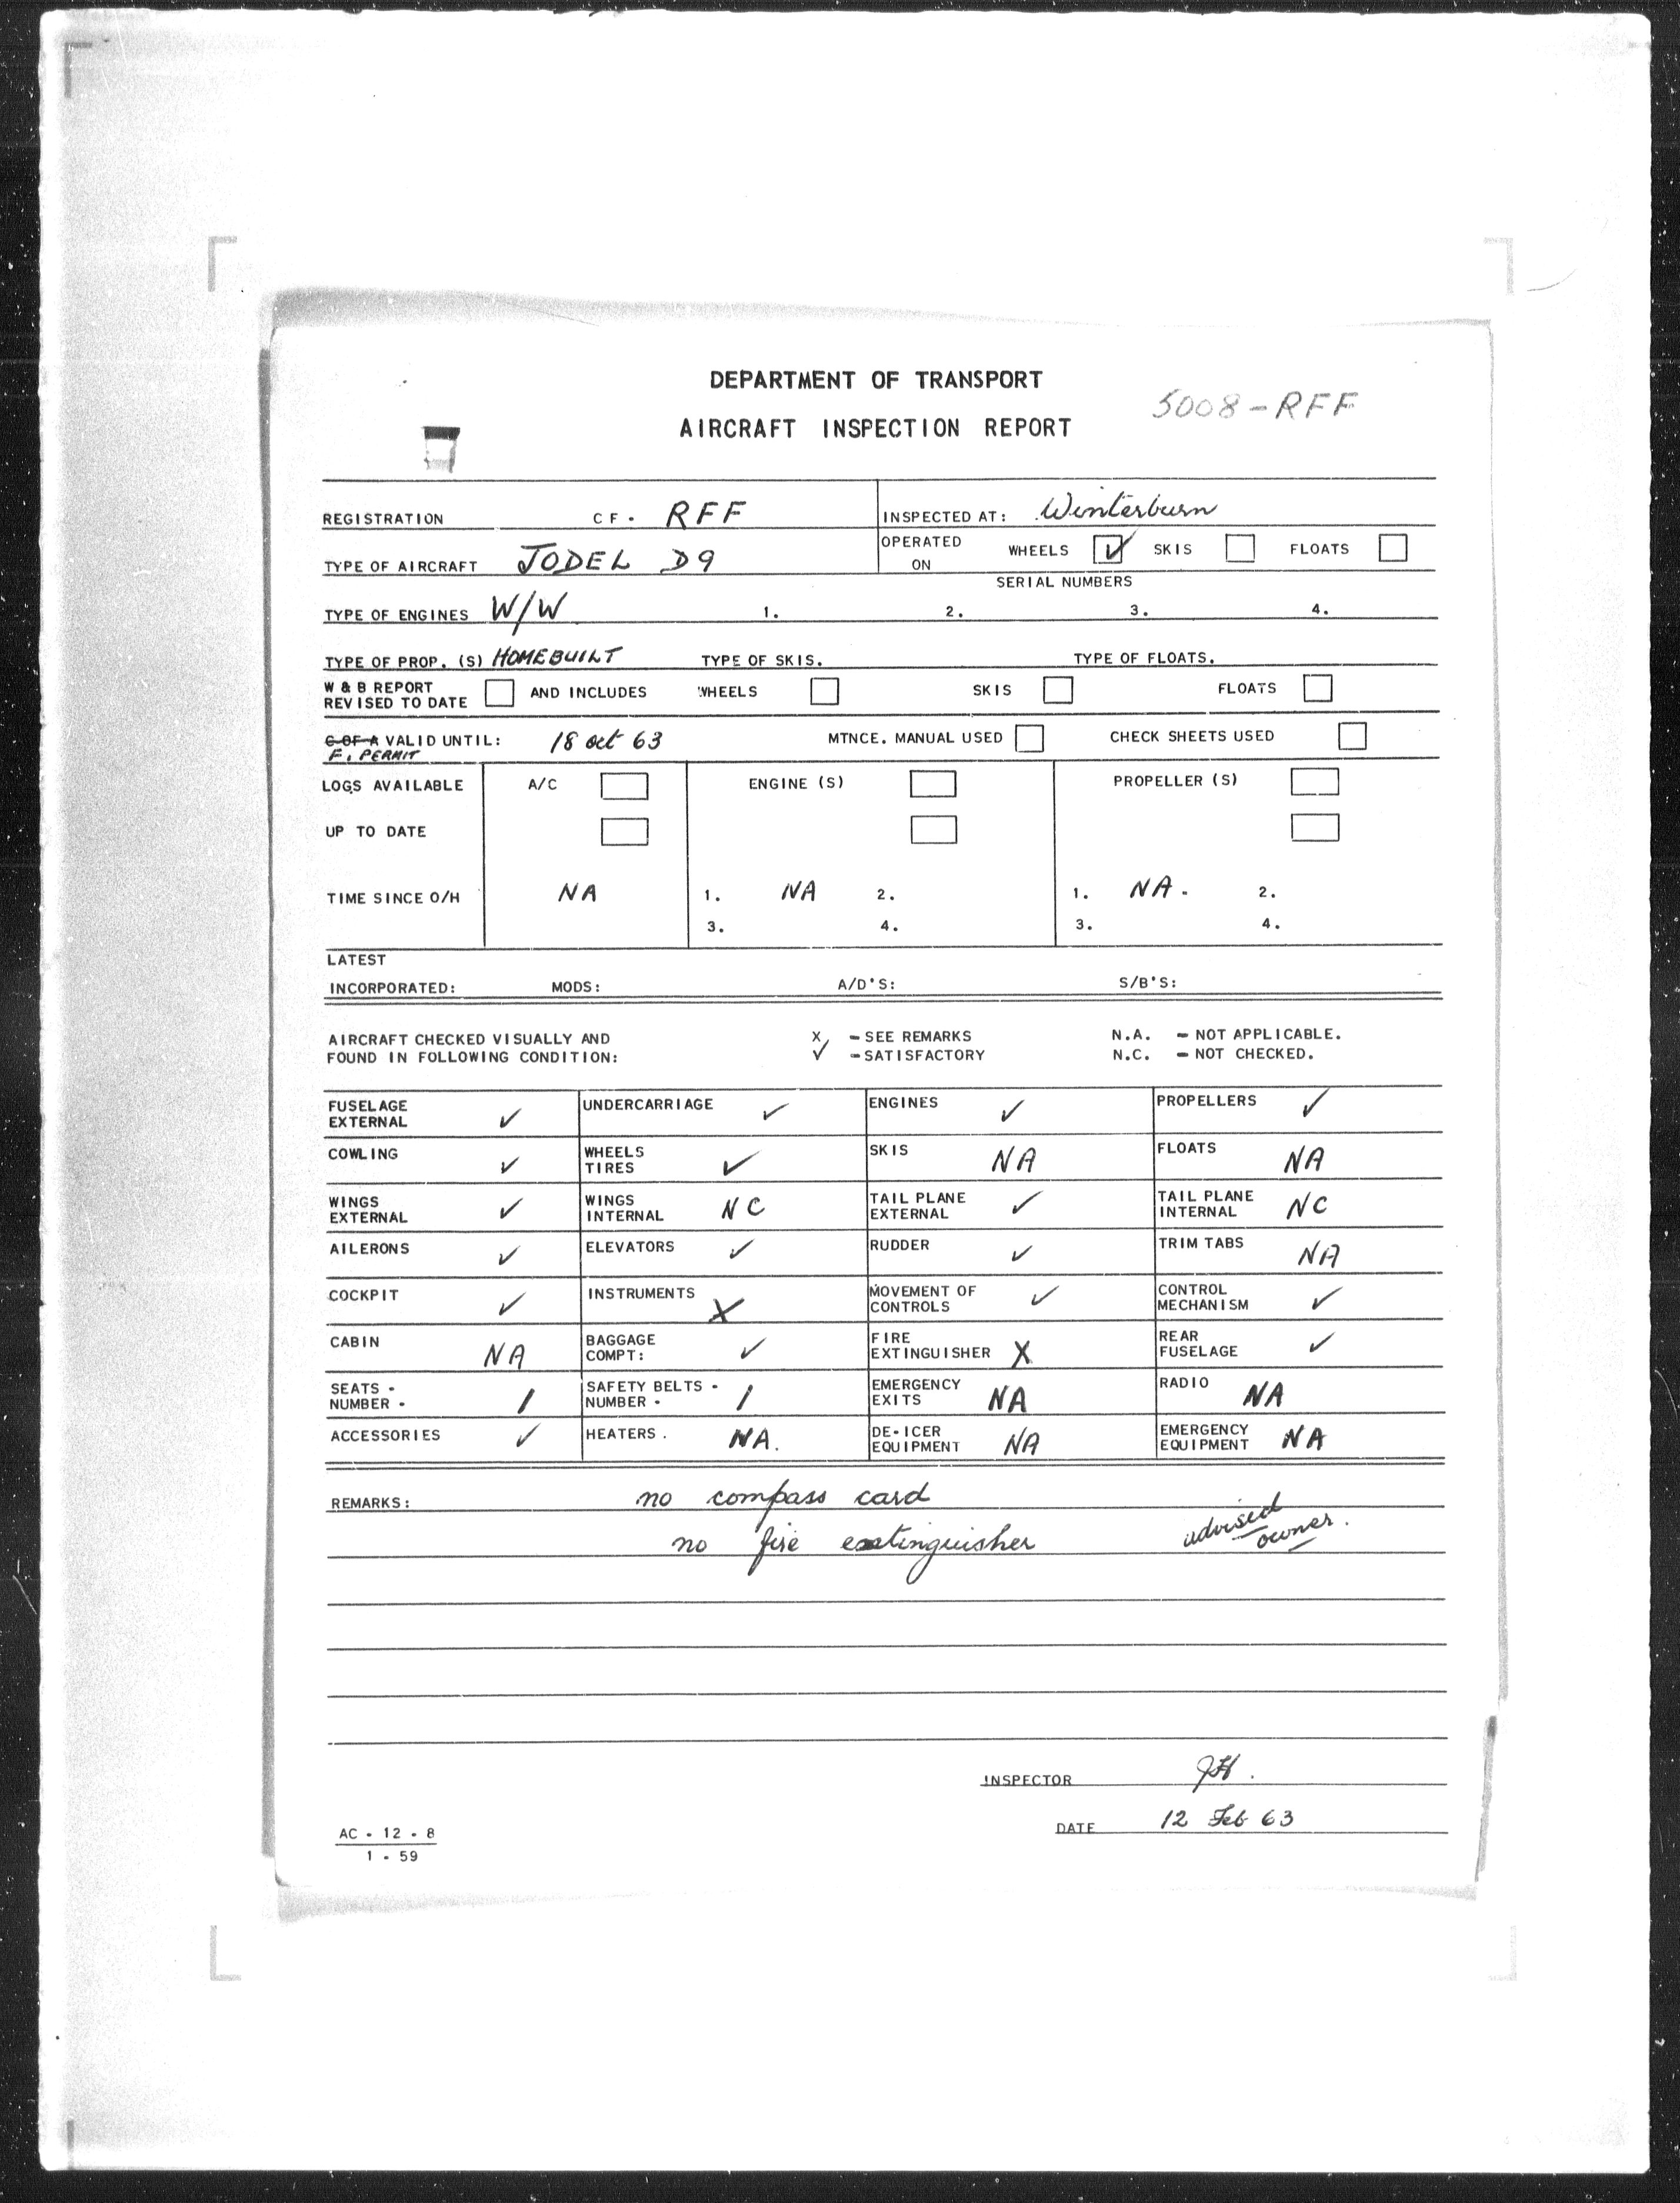 DEPARTMENT OF TRANSPORT
5008-RFF
AIRCRAFT INSPECTION REPORT
REGISTRATION CF. RFF INSPECTED AT: Winterburn
TYPE OF AIRCRAFT JODEL D9 OPERATED ON WHEELS ✓ SKIS FLOATS
SERIAL NUMBERS
TYPE OF ENGINES W/W 1. 2. 3. 4.
TYPE OF PROP. (S) HOMEBUILT TYPE OF SKIS. TYPE OF FLOATS.
W & B REPORT
REVISED TO DATE AND INCLUDES WHEELS SKIS FLOATS
C OF A VALID UNTIL: 18 Oct 63 MTNCE. MANUAL USED CHECK SHEETS USED
F. PERMIT
LOGS AVAILABLE A/C ENGINE (S) PROPELLER (S)
UP TO DATE
TIME SINCE O/H NA 1. NA 2. 1. NA - 2.
3. 4. 3. 4.
LATEST
INCORPORATED: MODS: A/D'S: S/B'S:
AIRCRAFT CHECKED VISUALLY AND X - SEE REMARKS N.A. - NOT APPLICABLE.
FOUND IN FOLLOWING CONDITION: ✓ - SATISFACTORY N.C. - NOT CHECKED.
FUSELAGE EXTERNAL ✓ UNDERCARRIAGE ✓ ENGINES ✓ PROPELLERS ✓
COWLING ✓ WHEELS TIRES ✓ SKIS NA FLOATS NA
WINGS EXTERNAL ✓ WINGS INTERNAL NC TAIL PLANE EXTERNAL ✓ TAIL PLANE INTERNAL NC
AILERONS ✓ ELEVATORS ✓ RUDDER ✓ TRIM TABS NA
COCKPIT ✓ INSTRUMENTS X MOVEMENT OF CONTROLS ✓ CONTROL MECHANISM ✓
CABIN NA BAGGAGE COMPT: ✓ FIRE EXTINGUISHER X REAR FUSELAGE ✓
SEATS - NUMBER - 1 SAFETY BELTS - NUMBER - 1 EMERGENCY EXITS NA RADIO NA
ACCESSORIES ✓ HEATERS. NA. DE-ICER EQUIPMENT NA EMERGENCY EQUIPMENT NA
REMARKS: no compass card
no fire extinguisher advised owner.
INSPECTOR JH.
DATE 12 Feb 63
AC - 12 - 8
1 - 59